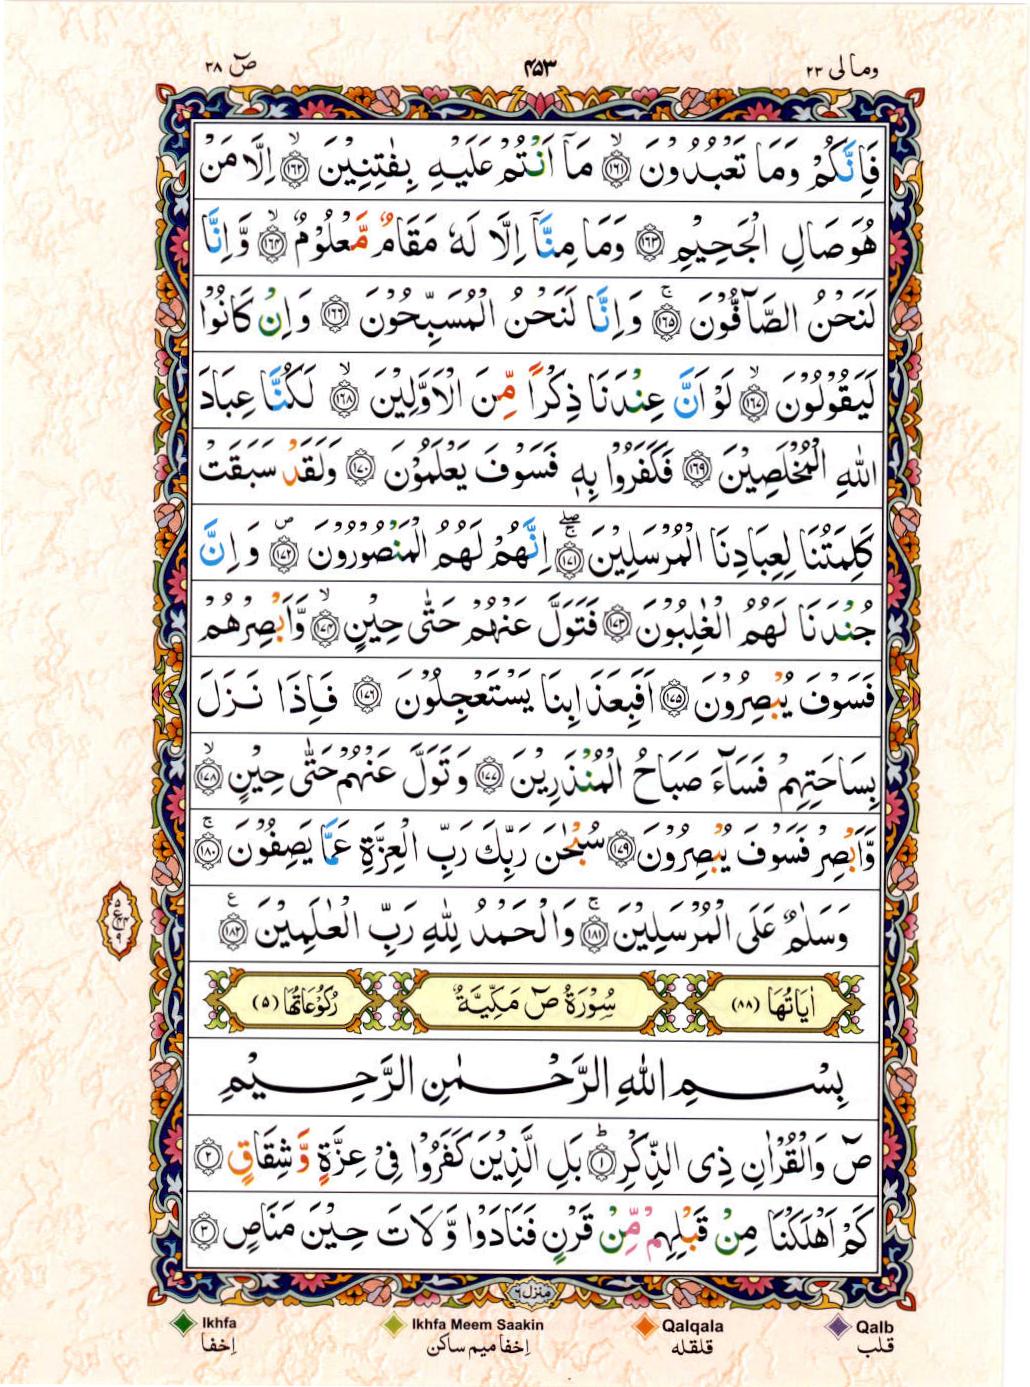 وما لی ۲۳
۴۵۳
صٓ ۳۸
فَاِنَّكُمْ وَمَا تَعْبُدُوْنَ ۙ‏﴿۱۶۱﴾ مَاۤ اَنْتُمْ عَلَيْهِ بِفٰتِنِيْنَ ۙ‏﴿۱۶۲﴾ اِلَّا مَنْ
هُوَ صَالِ الْجَحِيْمِ ﴿۱۶۳﴾ وَمَا مِنَّاۤ اِلَّا لَهٗ مَقَامٌ مَّعْلُوْمٌ ۙ‏﴿۱۶۴﴾ وَّاِنَّا
لَنَحْنُ الصَّآفُّوْنَ ۚ‏﴿۱۶۵﴾ وَاِنَّا لَنَحْنُ الْمُسَبِّحُوْنَ ﴿۱۶۶﴾ وَاِنْ كَانُوْا
لَيَقُوْلُوْنَ ۙ‏﴿۱۶۷﴾ لَوْ اَنَّ عِنْدَنَا ذِكْرًا مِّنَ الْاَوَّلِيْنَ ۙ‏﴿۱۶۸﴾ لَكُنَّا عِبَادَ
اللّٰهِ الْمُخْلَصِيْنَ ﴿۱۶۹﴾ فَكَفَرُوْا بِهٖ فَسَوْفَ يَعْلَمُوْنَ ﴿۱۷۰﴾ وَلَقَدْ سَبَقَتْ
كَلِمَتُنَا لِعِبَادِنَا الْمُرْسَلِيْنَ ۚۖ‏﴿۱۷۱﴾ اِنَّهُمْ لَهُمُ الْمَنْصُوْرُوْنَ ۪‏﴿۱۷۲﴾ وَاِنَّ
جُنْدَنَا لَهُمُ الْغٰلِبُوْنَ ﴿۱۷۳﴾ فَتَوَلَّ عَنْهُمْ حَتّٰى حِيْنٍ ۙ‏﴿۱۷۴﴾ وَّاَبْصِرْهُمْ
فَسَوْفَ يُبْصِرُوْنَ ﴿۱۷۵﴾ اَفَبِعَذَابِنَا يَسْتَعْجِلُوْنَ ﴿۱۷۶﴾ فَاِذَا نَزَلَ
بِسَاحَتِهِمْ فَسَآءَ صَبَاحُ الْمُنْذَرِيْنَ ﴿۱۷۷﴾ وَتَوَلَّ عَنْهُمْ حَتّٰى حِيْنٍ ۙ‏﴿۱۷۸﴾
وَّاَبْصِرْ فَسَوْفَ يُبْصِرُوْنَ ﴿۱۷۹﴾ سُبْحٰنَ رَبِّكَ رَبِّ الْعِزَّةِ عَمَّا يَصِفُوْنَ ۚ‏﴿۱۸۰﴾
وَسَلٰمٌ عَلَى الْمُرْسَلِيْنَ ۚ‏﴿۱۸۱﴾ وَالْحَمْدُ لِلّٰهِ رَبِّ الْعٰلَمِيْنَ ﴿۱۸۲﴾ ع
۵ ع ۴۴ ۹
اٰيَاتُهَا (۸۸)
سُوْرَةُ صٓ مَكِّيَّةٌ
رُكُوْعَاتُهَا (۵)
بِسْمِ اللّٰهِ الرَّحْمٰنِ الرَّحِيْمِ
صٓ وَالْقُرْاٰنِ ذِى الذِّكْرِ ؕ‏﴿۱﴾ بَلِ الَّذِيْنَ كَفَرُوْا فِىْ عِزَّةٍ وَّشِقَاقٍ ﴿۲﴾
كَمْ اَهْلَكْنَا مِنْ قَبْلِهِمْ مِّنْ قَرْنٍ فَنَادَوْا وَّلَاتَ حِيْنَ مَنَاصٍ ﴿۳﴾
منزل ۶
Ikhfa
Ikhfa Meem Saakin
Qalqala
Qalb
اِخفا
اِخفا میم ساکن
قلقله
قلب